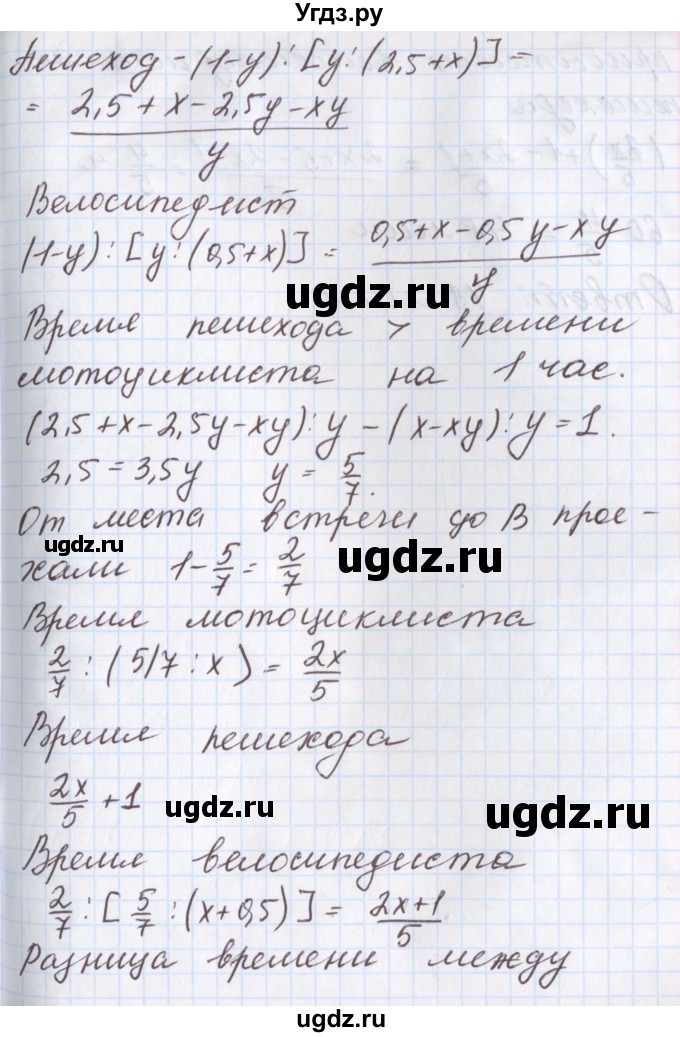 Угдз.ру
Пешеход - (1-y) : [y : (2,5+x)] =
= (2,5+x-2,5y-xy)/y
Велосипедист
(1-y) : [y : (0,5+x)] = (0,5+x-0,5y-xy)/y
ugdz.ru
Время пешехода > времени
мотоциклиста на 1 час.
(2,5+x-2,5y-xy) : y - (x-xy) : y = 1.
2,5 = 3,5y y = 5/7.
От места встречи до В прое-
ugdz.ru
ugdz.ru
хали 1 - 5/7 = 2/7
Время мотоциклиста
2/7 : (5/7 : x) = 2x/5
Время пешехода
2x/5 + 1
ugdz.ru
ugdz.ru
Время велосипедиста
2/7 : [5/7 : (x+0,5)] = (2x+1)/5
Разница времени между
ugdz.ru